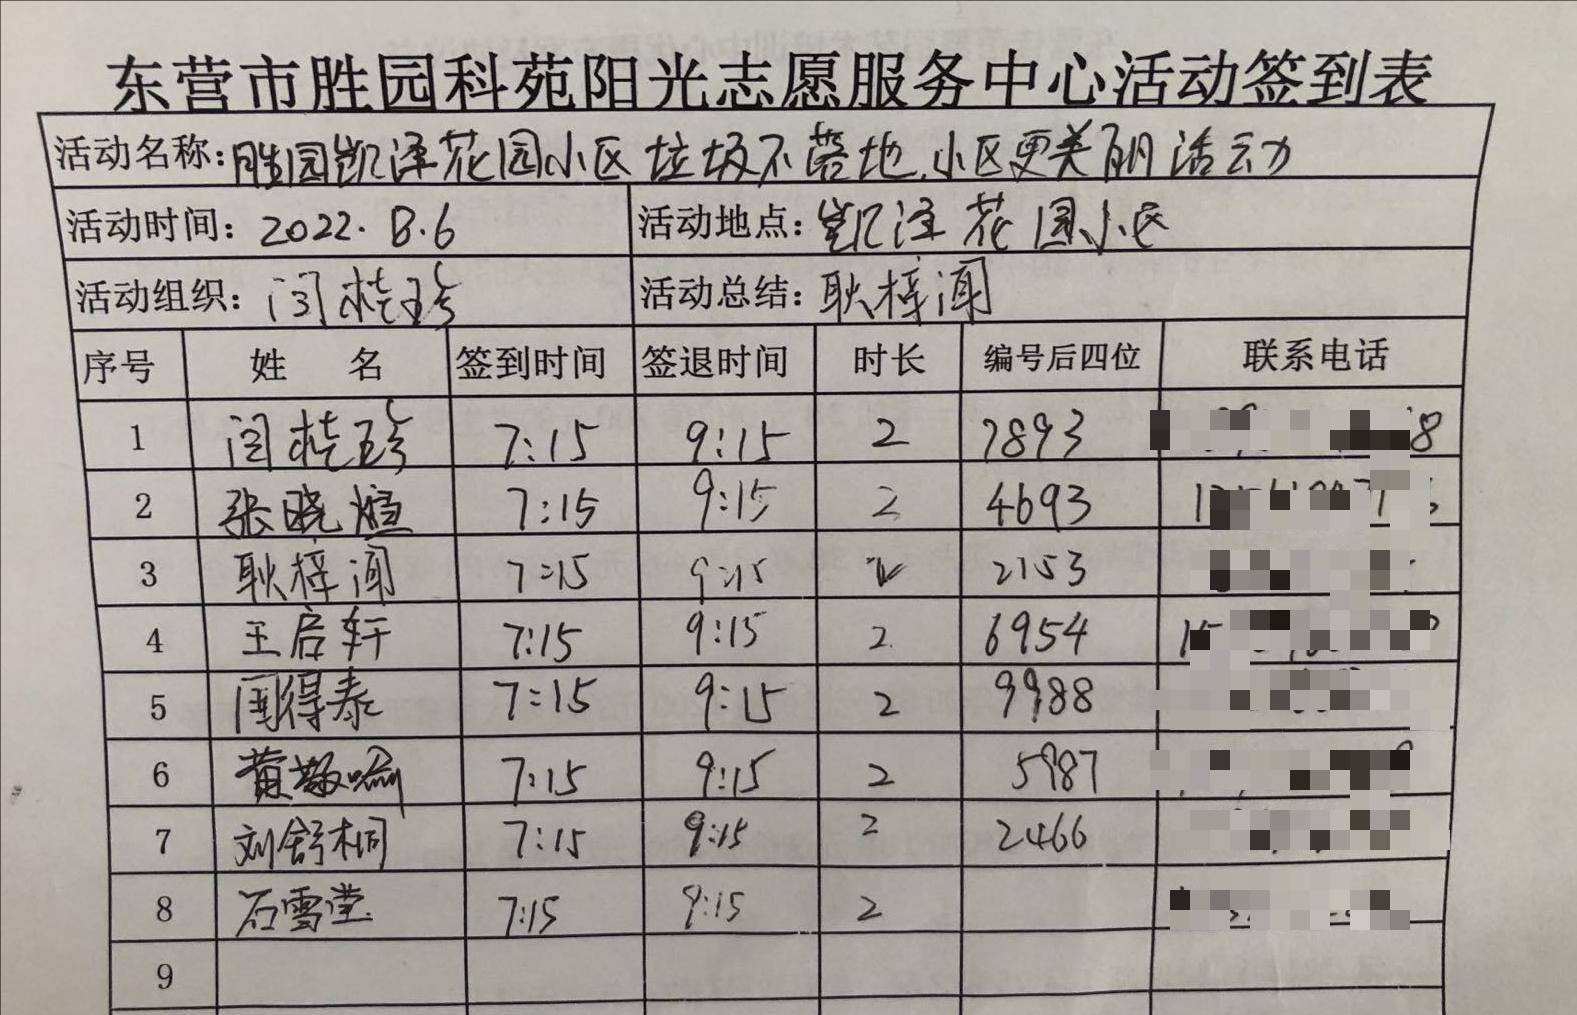 东营市胜园科苑阳光志愿服务中心活动签到表
活动名称:胜园凯泽花园小区垃圾不落地,小区更美丽活动
活动时间:2022.8.6 活动地点:凯泽花园小区
活动组织:闫桂珍 活动总结:耿梓闻
序号 姓 名 签到时间 签退时间 时长 编号后四位 联系电话
1 闫桂珍 7:15 9:15 2 7893
2 张晓煊 7:15 9:15 2 4693
3 耿梓闻 7:15 9:15 2 2153
4 王启轩 7:15 9:15 2 6954
5 得泰 7:15 9:15 2 9988
6 黄敬 7:15 9:15 2 5987
7 刘舒桐 7:15 9:15 2 2466
8 石雪莹 7:15 9:15 2
9